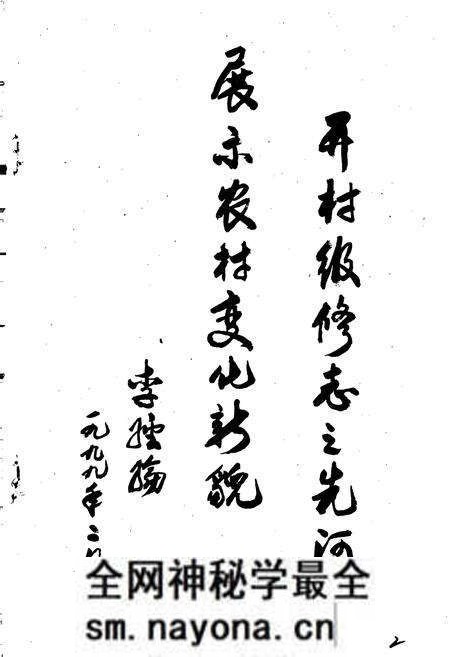 开村级修志之先河
展示农村变化新貌
李
一九九九年二
全网神秘学最全
sm.nayona.cn
2